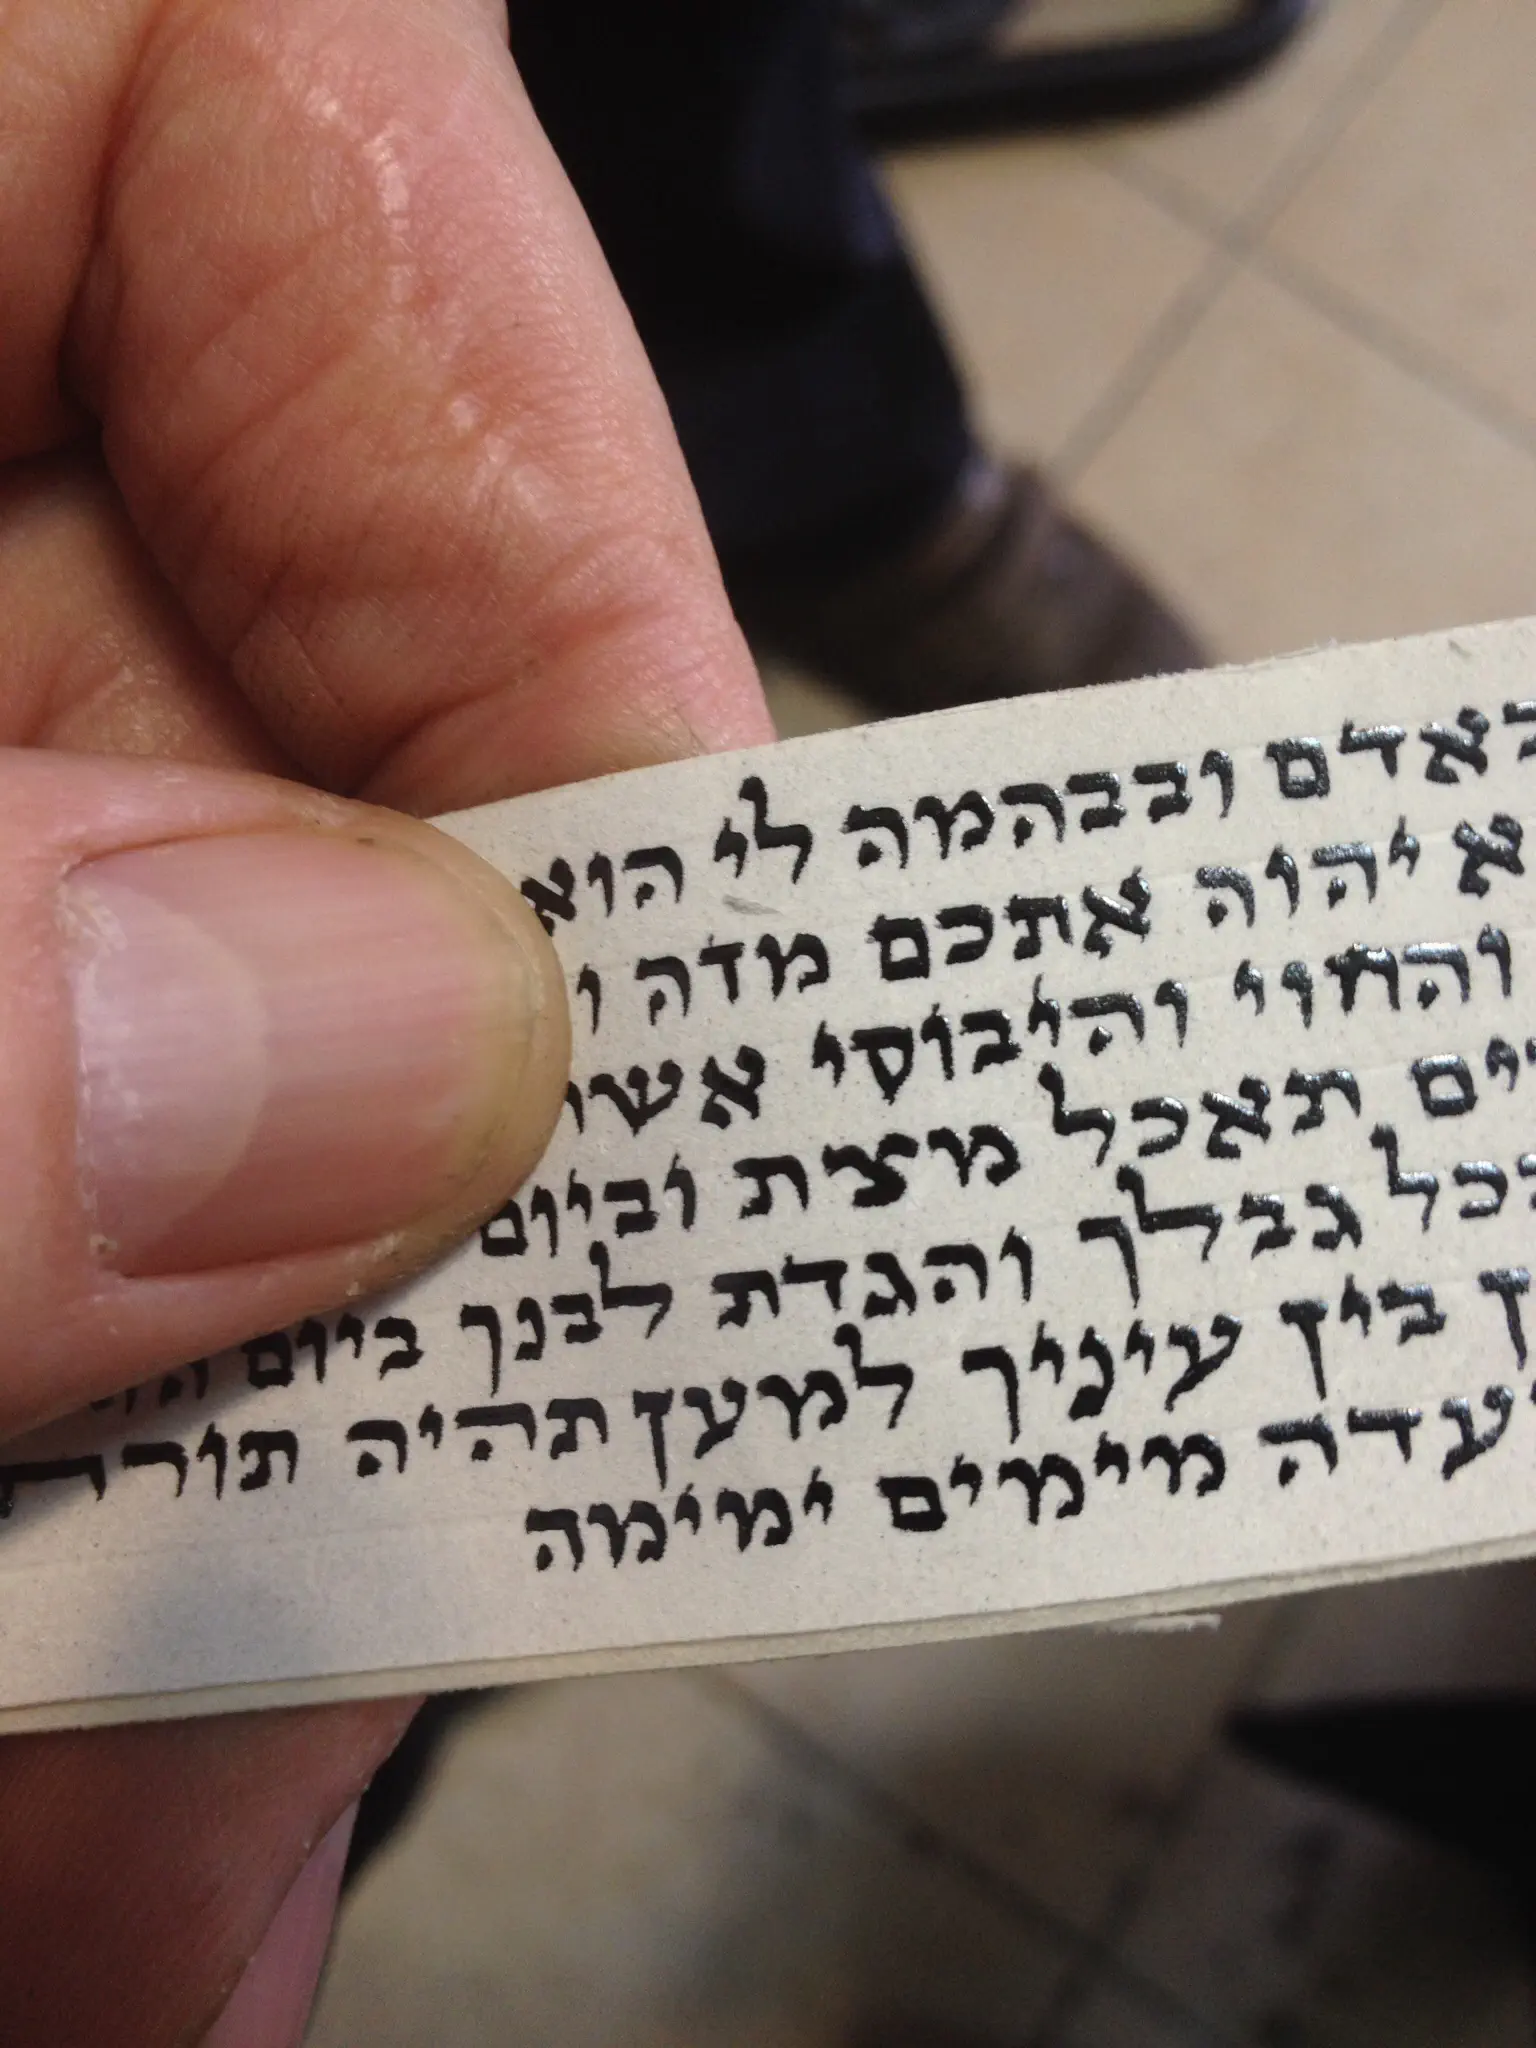 באדם ובבהמה לי הוא
א יהוה אתכם מדה ו
והחוי והיבוסי אשר
ים תאכל מצת וביום
בכל גבלך והגדת לבנך ביום
בין עיניך למען תהיה תורת
מימים ימימה